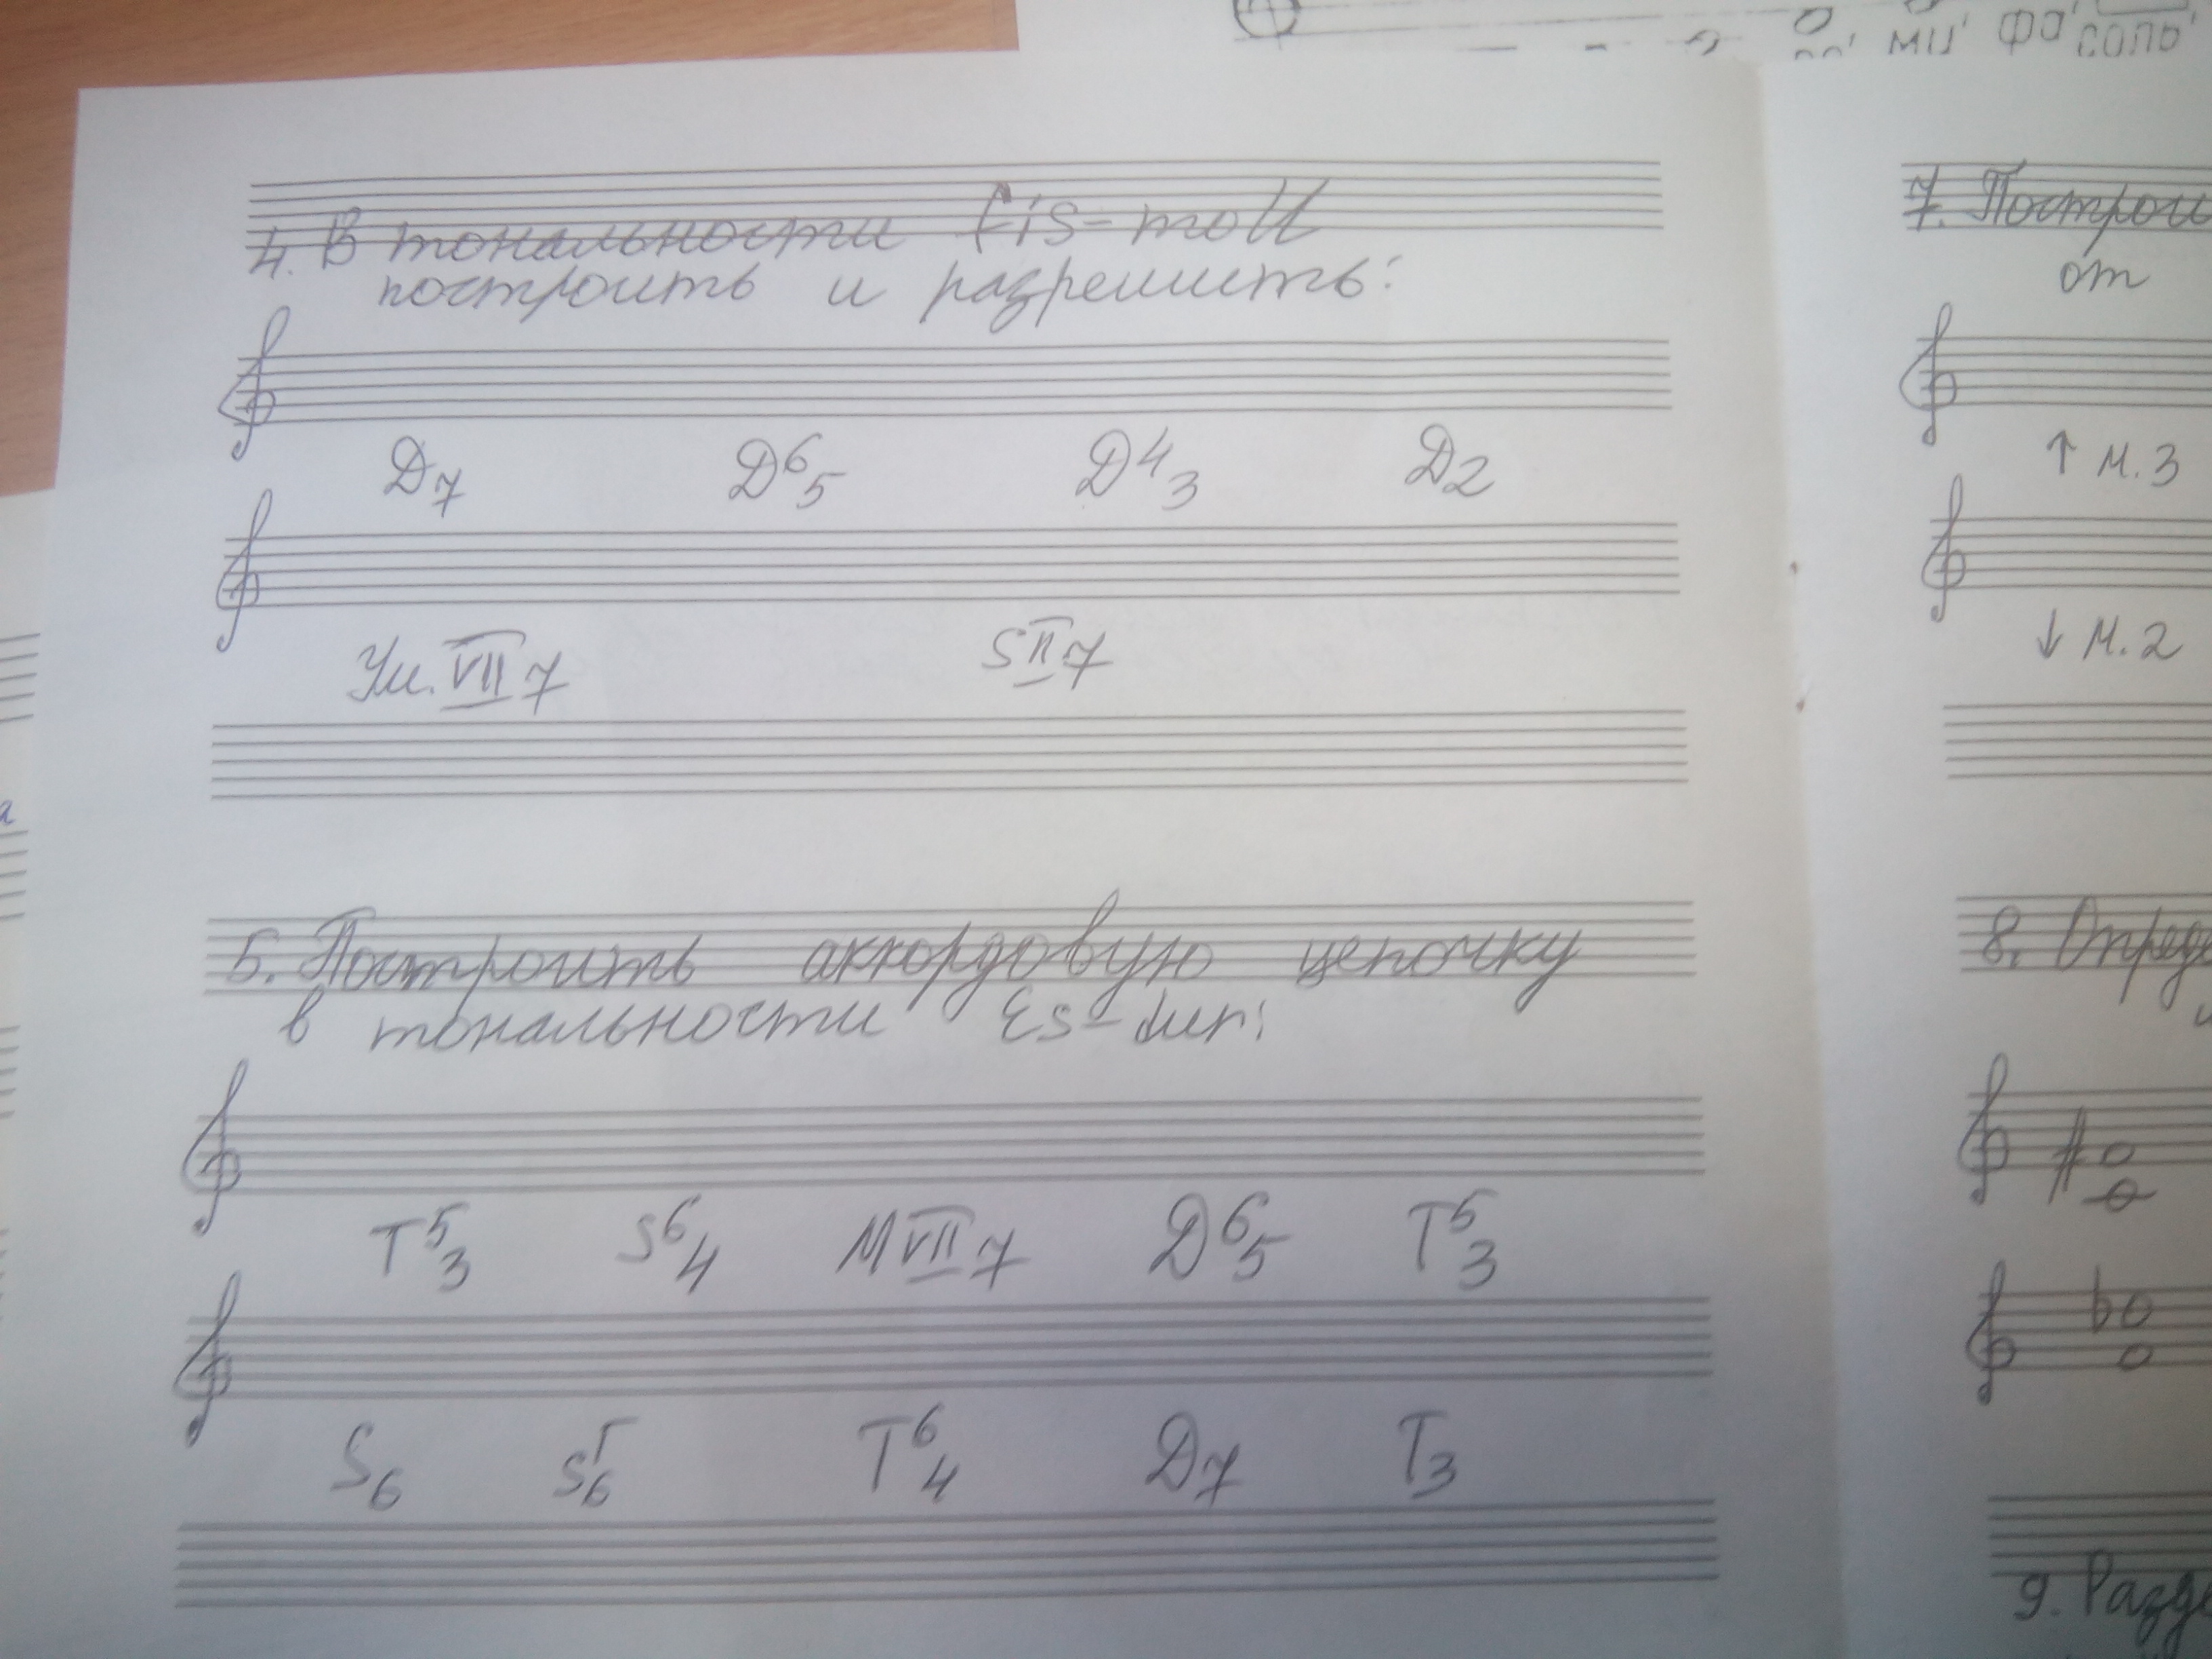 МИ' ФА' СОЛЬ'
4. В тональности fis-moll
построить и разрешить:
Д7 Д6/5 Д4/3 Д2
Ум. VII7 SII7
5. Построить аккордовую цепочку
в тональности Es-dur:
Т5/3 S6/4 МVII7 Д6/5 Т5/3
S6 Т6/4 Д7 Т3
7. Построи
от
↑ м.3
↓ м.2
8. Опреде
9. Разде